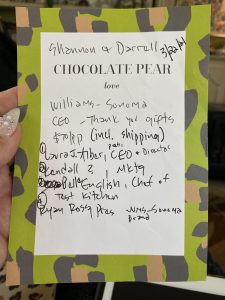 Shannon & Darrell
3/22/21
CHOCOLATE PEAR
love
Williams-Sonoma
CEO - Thank you gifts
$70/pp (incl. shipping)
① Laura Alber, CEO + Director
② Kendall 2, Mktg
③ Belle English, Chef of
Test Kitchen
Ryan Ross, Pres - Wms-Sonoma
Brand